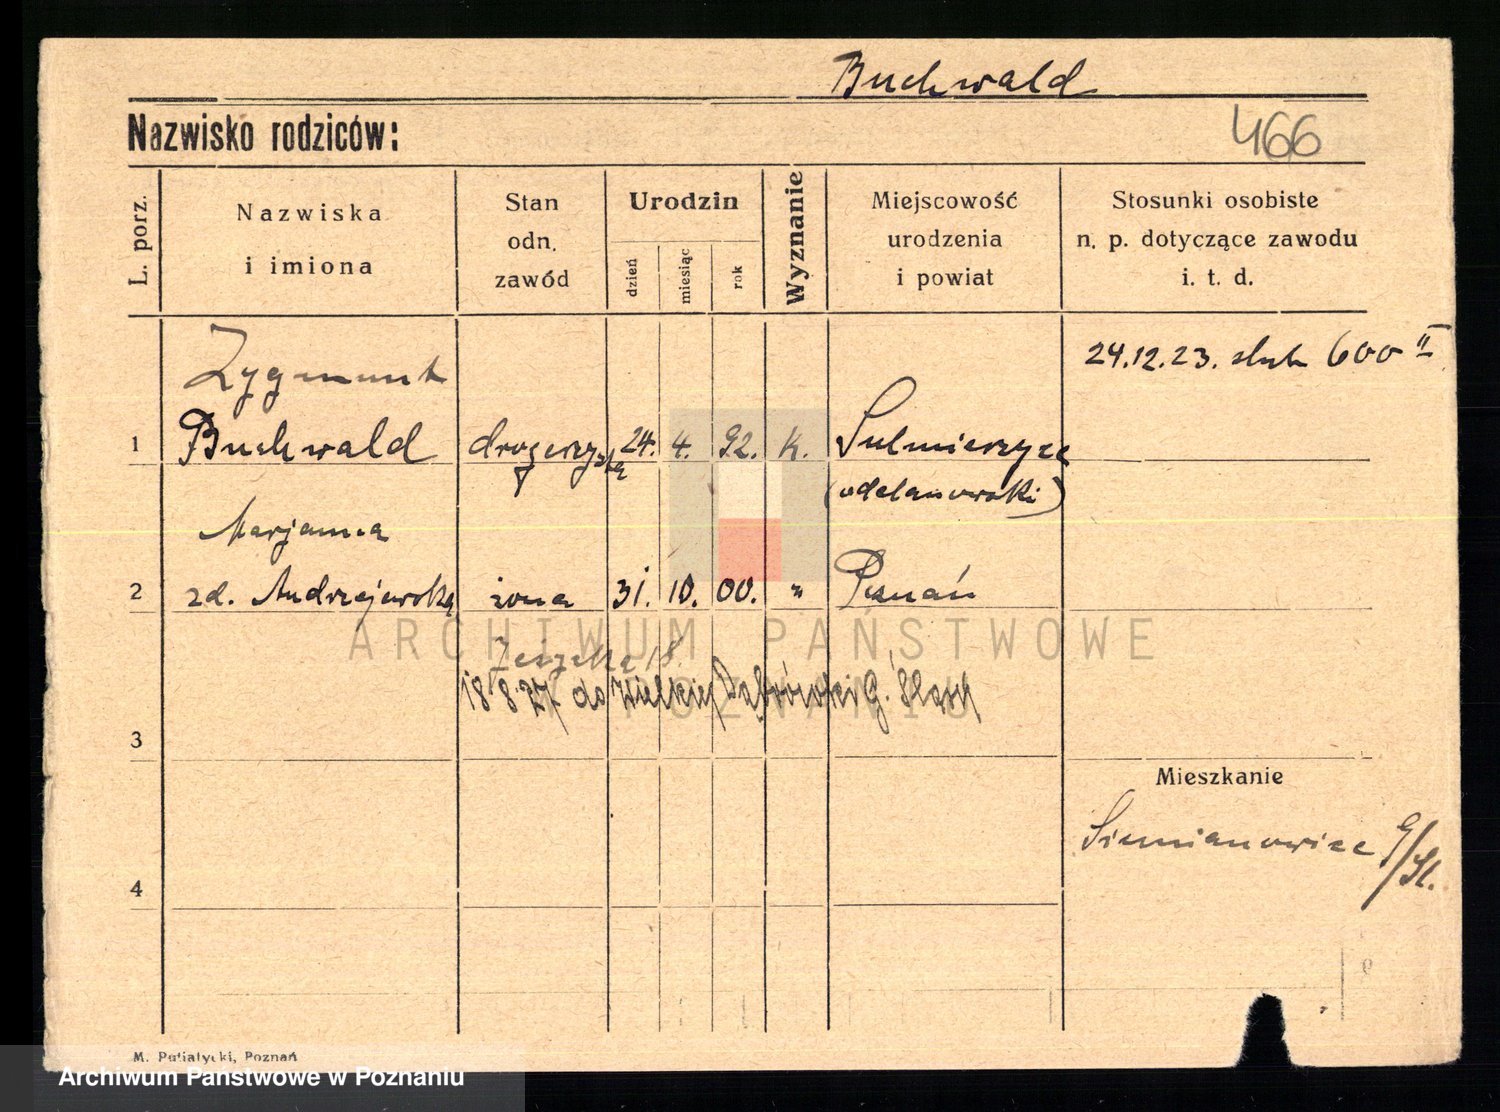 Buchwald
Nazwisko rodziców:
466
L. porz.
Nazwiska
i imiona
Stan
odn.
zawód
Urodzin
dzień
miesiąc
rok
Wyznanie
Miejscowość
urodzenia
i powiat
Stosunki osobiste
n. p. dotyczące zawodu
i. t. d.
24.12.23. ślub 600 II
Zygmunt
1 Buchwald drogerzysta 24. 4. 92. K. Sulmierzyce
(odolanowski)
Marjanna
2 zd. Andrzejewska żona 31. 10. 00. " Poznań
ARCHIWUM PAŃSTWOWE
18.
W POZNANIU
18.8.27 do Wielkiej Dąbrówki G. Śląsk
3
Mieszkanie
Siemianowice G/Śl.
4
M. Putiatycki, Poznań
Archiwum Państwowe w Poznaniu